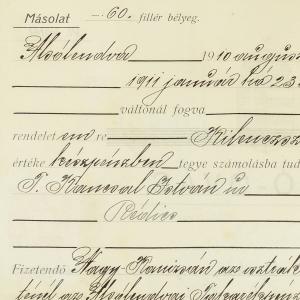 Másolat — 60. fillér bélyeg.
Alsólendva 1910 augus
1911 január hó 23
váltónál fogva
rendelet em re Kilencz
értéke készpénzben tegye számolásba tud
T. Kancsal István úr
Rédics
Fizetendő Nagy-Kanizsán az osztrák
ténél az Alsólendvai Takarékpénz